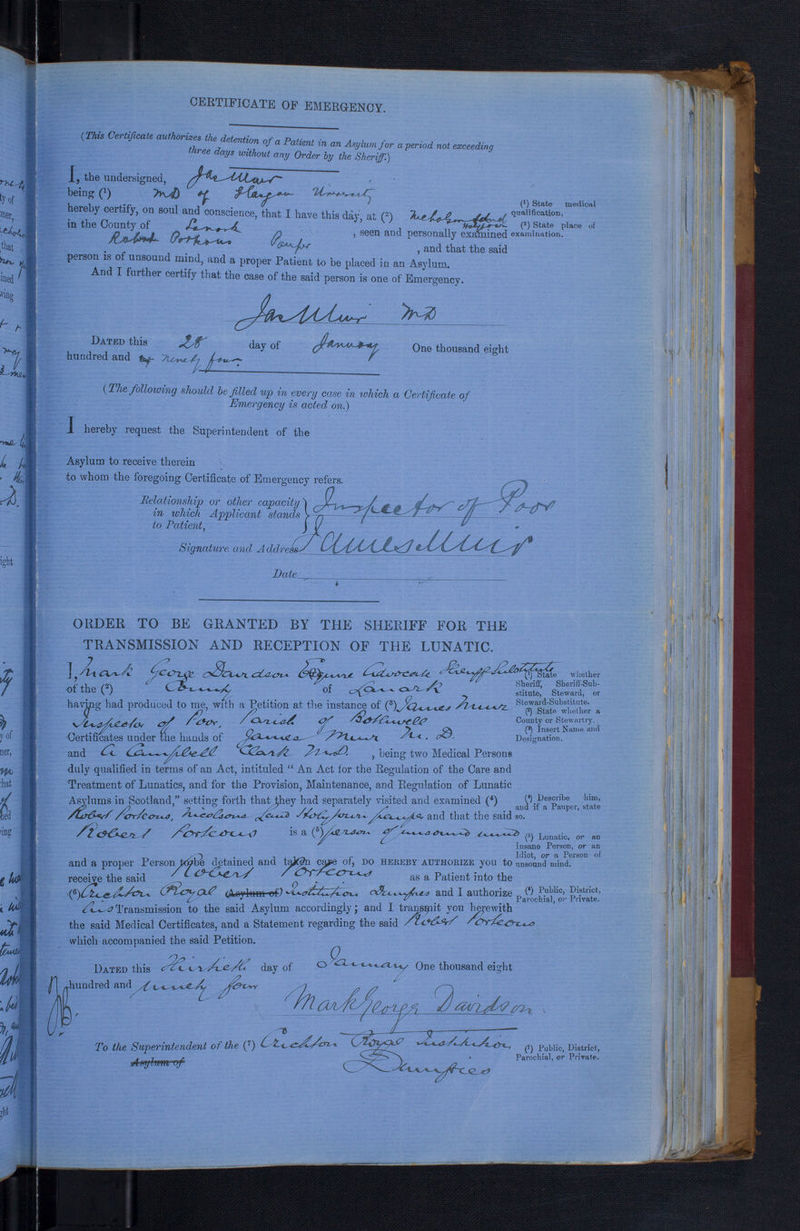 CERTIFICATE OF EMERGENCY.
(This Certificate authorizes the detention of a Patient in an Asylum for a period not exceeding
three days without any Order by the Sheriff.)
I, the undersigned, Jas Muir
being (¹) MD of Glasgow University
hereby certify, on soul and conscience, that I have this day, at (²) Nicholson Land
Holytown
in the County of Lanark , seen and personally examined
Robert Porteous Pauper , and that the said
person is of unsound mind, and a proper Patient to be placed in an Asylum.
And I further certify that the case of the said person is one of Emergency.
(¹) State medical
qualification.
(²) State place of
examination.
Jas Muir MD
DATED this 28 day of January One thousand eight
hundred and ninety four
(The following should be filled up in every case in which a Certificate of
Emergency is acted on.)
I hereby request the Superintendent of the
Asylum to receive therein
to whom the foregoing Certificate of Emergency refers.
Relationship or other capacity
in which Applicant stands
to Patient,
Inspector of Poor
Signature and Address James Muir
Date
ORDER TO BE GRANTED BY THE SHERIFF FOR THE
TRANSMISSION AND RECEPTION OF THE LUNATIC.
I, Mark George Davidson Esquire Advocate Sheriff Substitute
of the (²) County of Lanark
having had produced to me, with a Petition at the instance of (³) James Muir
Inspector of Poor, Parish of Bothwell
Certificates under the hands of James Muir M. D.
and A Campbell Clark M.D. , being two Medical Persons
duly qualified in terms of an Act, intituled “ An Act for the Regulation of the Care and
Treatment of Lunatics, and for the Provision, Maintenance, and Regulation of Lunatic
Asylums in Scotland,” setting forth that they had separately visited and examined (⁴)
Robert Porteous, Nicolsons Land Holytown pauper and that the said
Robert Porteous is a (⁵) person of unsound mind
and a proper Person to be detained and taken care of, DO HEREBY AUTHORIZE you to
receive the said Robert Porteous as a Patient into the
(⁶) Crichton Royal Asylum of Institution Dumfries and I authorize
his Transmission to the said Asylum accordingly; and I transmit you herewith
the said Medical Certificates, and a Statement regarding the said Robert Porteous
which accompanied the said Petition.
(¹) State whether
Sheriff, Sheriff-Sub-
stitute, Steward, or
Steward-Substitute.
(²) State whether a
County or Stewartry.
(³) Insert Name and
Designation.
(⁴) Describe him,
and if a Pauper, state
so.
(⁵) Lunatic, or an
Insane Person, or an
Idiot, or a Person of
unsound mind.
(⁶) Public, District,
Parochial, or Private.
DATED this Thirtieth day of January One thousand eight
hundred and ninety four
Mark George Davidson
To the Superintendent of the (⁷) Crichton Royal Institution
Asylum of
Dumfries
(⁷) Public, District,
Parochial, or Private.